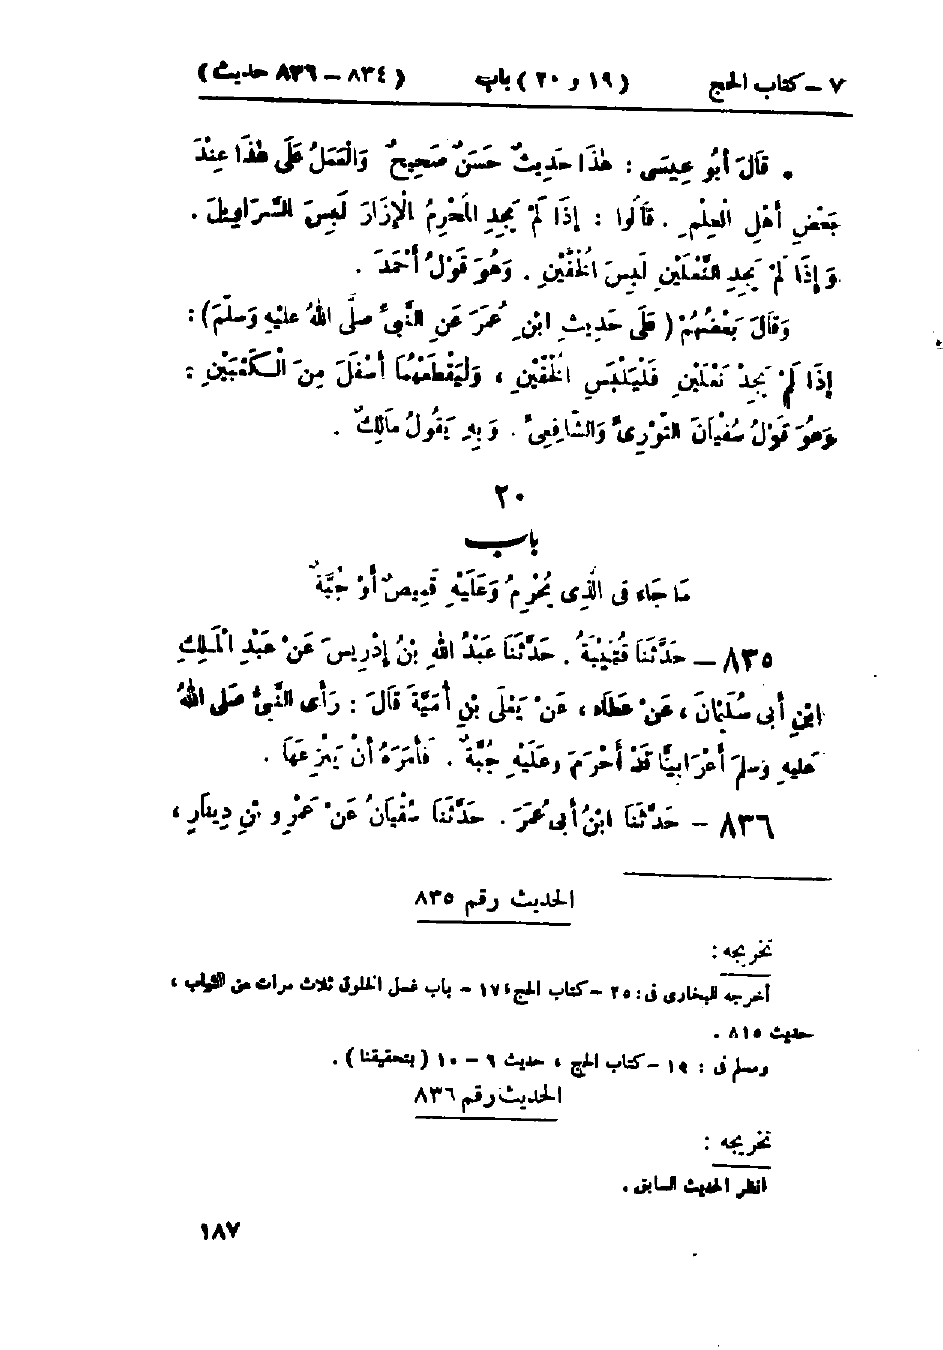 ٧ – كتاب الحج (١٩ و ٢٠) باب (٨٣٤ – ٨٣٦ حديث)
• قَالَ أَبُو عِيسَى : هٰذَا حَدِيثٌ حَسَنٌ صَحِيحٌ وَالْعَمَلُ عَلَى هٰذَا عِنْدَ
بَعْضِ أَهْلِ الْعِلْمِ . قَالُوا : إِذَا لَمْ يَجِدِ الْمُحْرِمُ الْإِزَارَ لَبِسَ السَّرَاوِيلَ .
وَإِذَا لَمْ يَجِدِ النَّعْلَيْنِ لَبِسَ الْخُفَّيْنِ . وَهُوَ قَوْلُ أَحْمَدَ .
وَقَالَ بَعْضُهُمْ ( عَلَى حَدِيثِ ابْنِ عُمَرَ عَنِ النَّبِيِّ صَلَّى اللهُ عليْهِ وَسَلَّمَ) :
إِذَا لَمْ يَجِدْ نَعْلَيْنِ فَلْيَلْبَسِ الْخُفَّيْنِ ، وَلْيَقْطَعْهُمَا أَسْفَلَ مِنَ الْكَعْبَيْنِ :
وَهُوَ قَوْلُ سُفْيَانَ الثَّوْرِيِّ وَالشَّافِعِيِّ . وَبِهِ يَقُولُ مَالِكٌ .
٢٠
باب
مَا جَاءَ فِى الَّذِى يُحْرِمُ وَعَلَيْهِ قَمِيصٌ أَوْ جُبَّةٌ
٨٣٥ – حَدَّثَنَا قُتَيْبَةُ . حَدَّثَنَا عَبْدُ اللهِ بْنُ إِدْرِيسَ عَنْ عَبْدِ الْمَلِكِ
ابْنِ أَبِى سُلَيْمَانَ ، عَنْ عَطَاءٍ ، عَنْ يَعْلَى بْنِ أُمَيَّةَ قَالَ : رَأَى النَّبِيُّ صَلَّى اللهُ
عَليهِ وَسلمَ أَعْرَابِيًّا قَدْ أَحْرَمَ وعَلَيْهِ جُبَّةٌ . فَأَمَرَهُ أَنْ يَنْزِعَهَا .
٨٣٦ – حَدَّثَنَا ابْنُ أَبِى عُمَرَ . حَدَّثَنَا سُفْيَانُ عَنْ عَمْرِو بْنِ دِينَارٍ ،
الحديث رقم ٨٣٥
تخريجه :
أخرجه البخارى فى : ٢٥ – كتاب الحج ١٧٤ – باب غسل الخلوق ثلاث مرات من الثياب ،
حديث ٨١٥ .
ومسلم فى : ١٩ – كتاب الحج ، حديث ٩ – ١٠ (بتحقيقنا) .
الحديث رقم ٨٣٦
تخريجه :
انظر الحديث السابق .
١٨٧